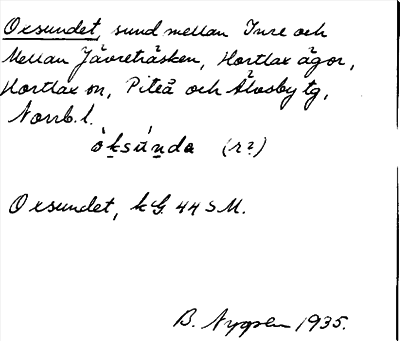 Oxsundet, sund mellan Inre och
Mellan Jävreträsken, Hortlax ägor,
Hortlax sn, Piteå och Älvsby tg,
Norrb. l.
ò̀ksúnda (r2)
Oxsundet, kG. 44 S M.
B. Nygren 1935.